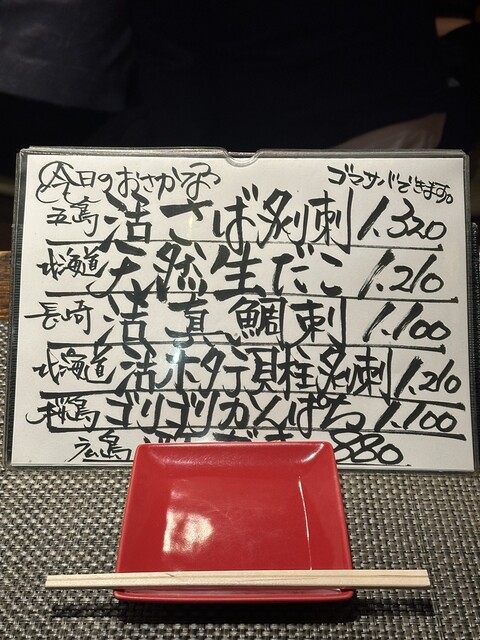 今日のおさかな
ゴマサバできます。
五島 活さば刺 1.320
北海道 天然生だこ 1.210
長崎 活真鯛刺 1.100
北海道 活ホタテ貝柱刺 1.210
ゴリゴリかんぱち 1.100
広島 880